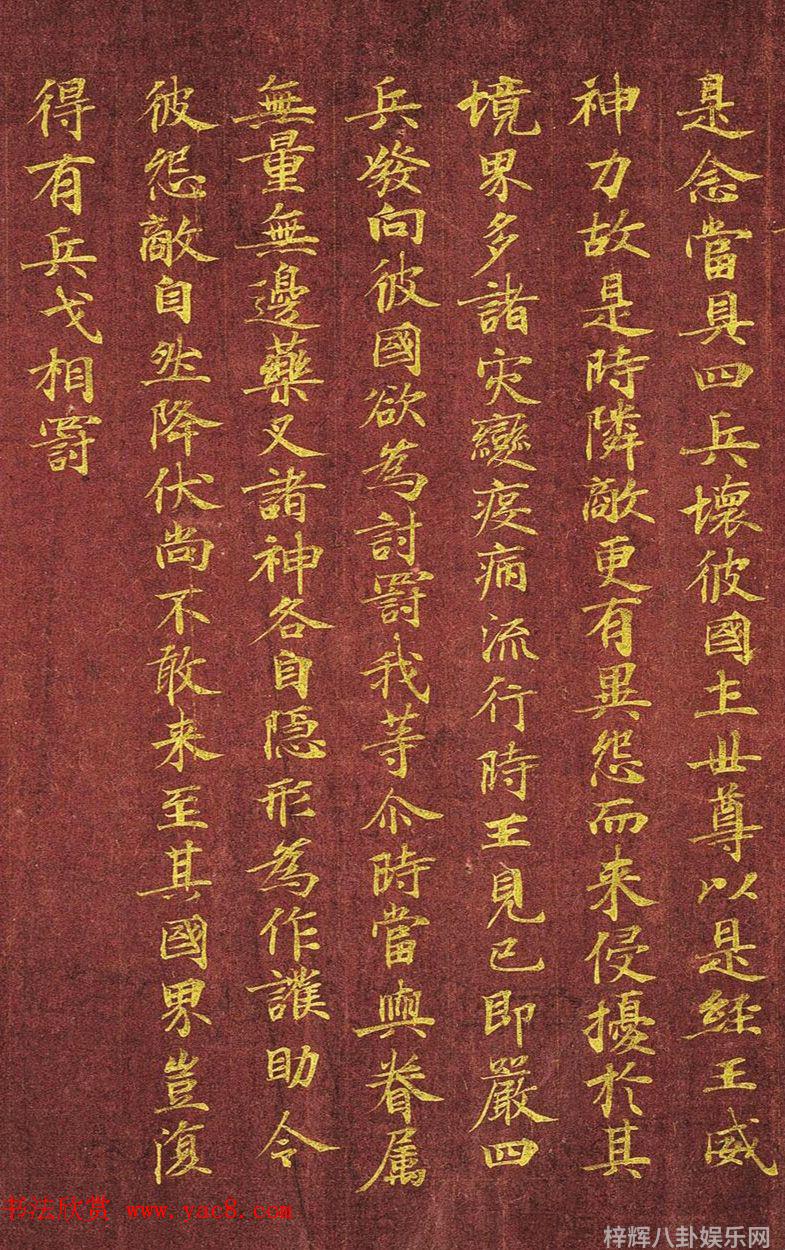 是念當具四兵壞彼國土世尊以是經王威
神力故是時隣敵更有異怨而来侵擾於其
境界多諸灾變疫病流行時王見已即嚴四
兵發向彼國欲為討罰我等尒時當與眷属
無量無邊藥叉諸神各自隐形為作護助令
彼怨敵自然降伏尚不敢来至其國界豈復
得有兵戈相罰
书法欣赏 www.yac8.com
梓辉八卦娱乐网